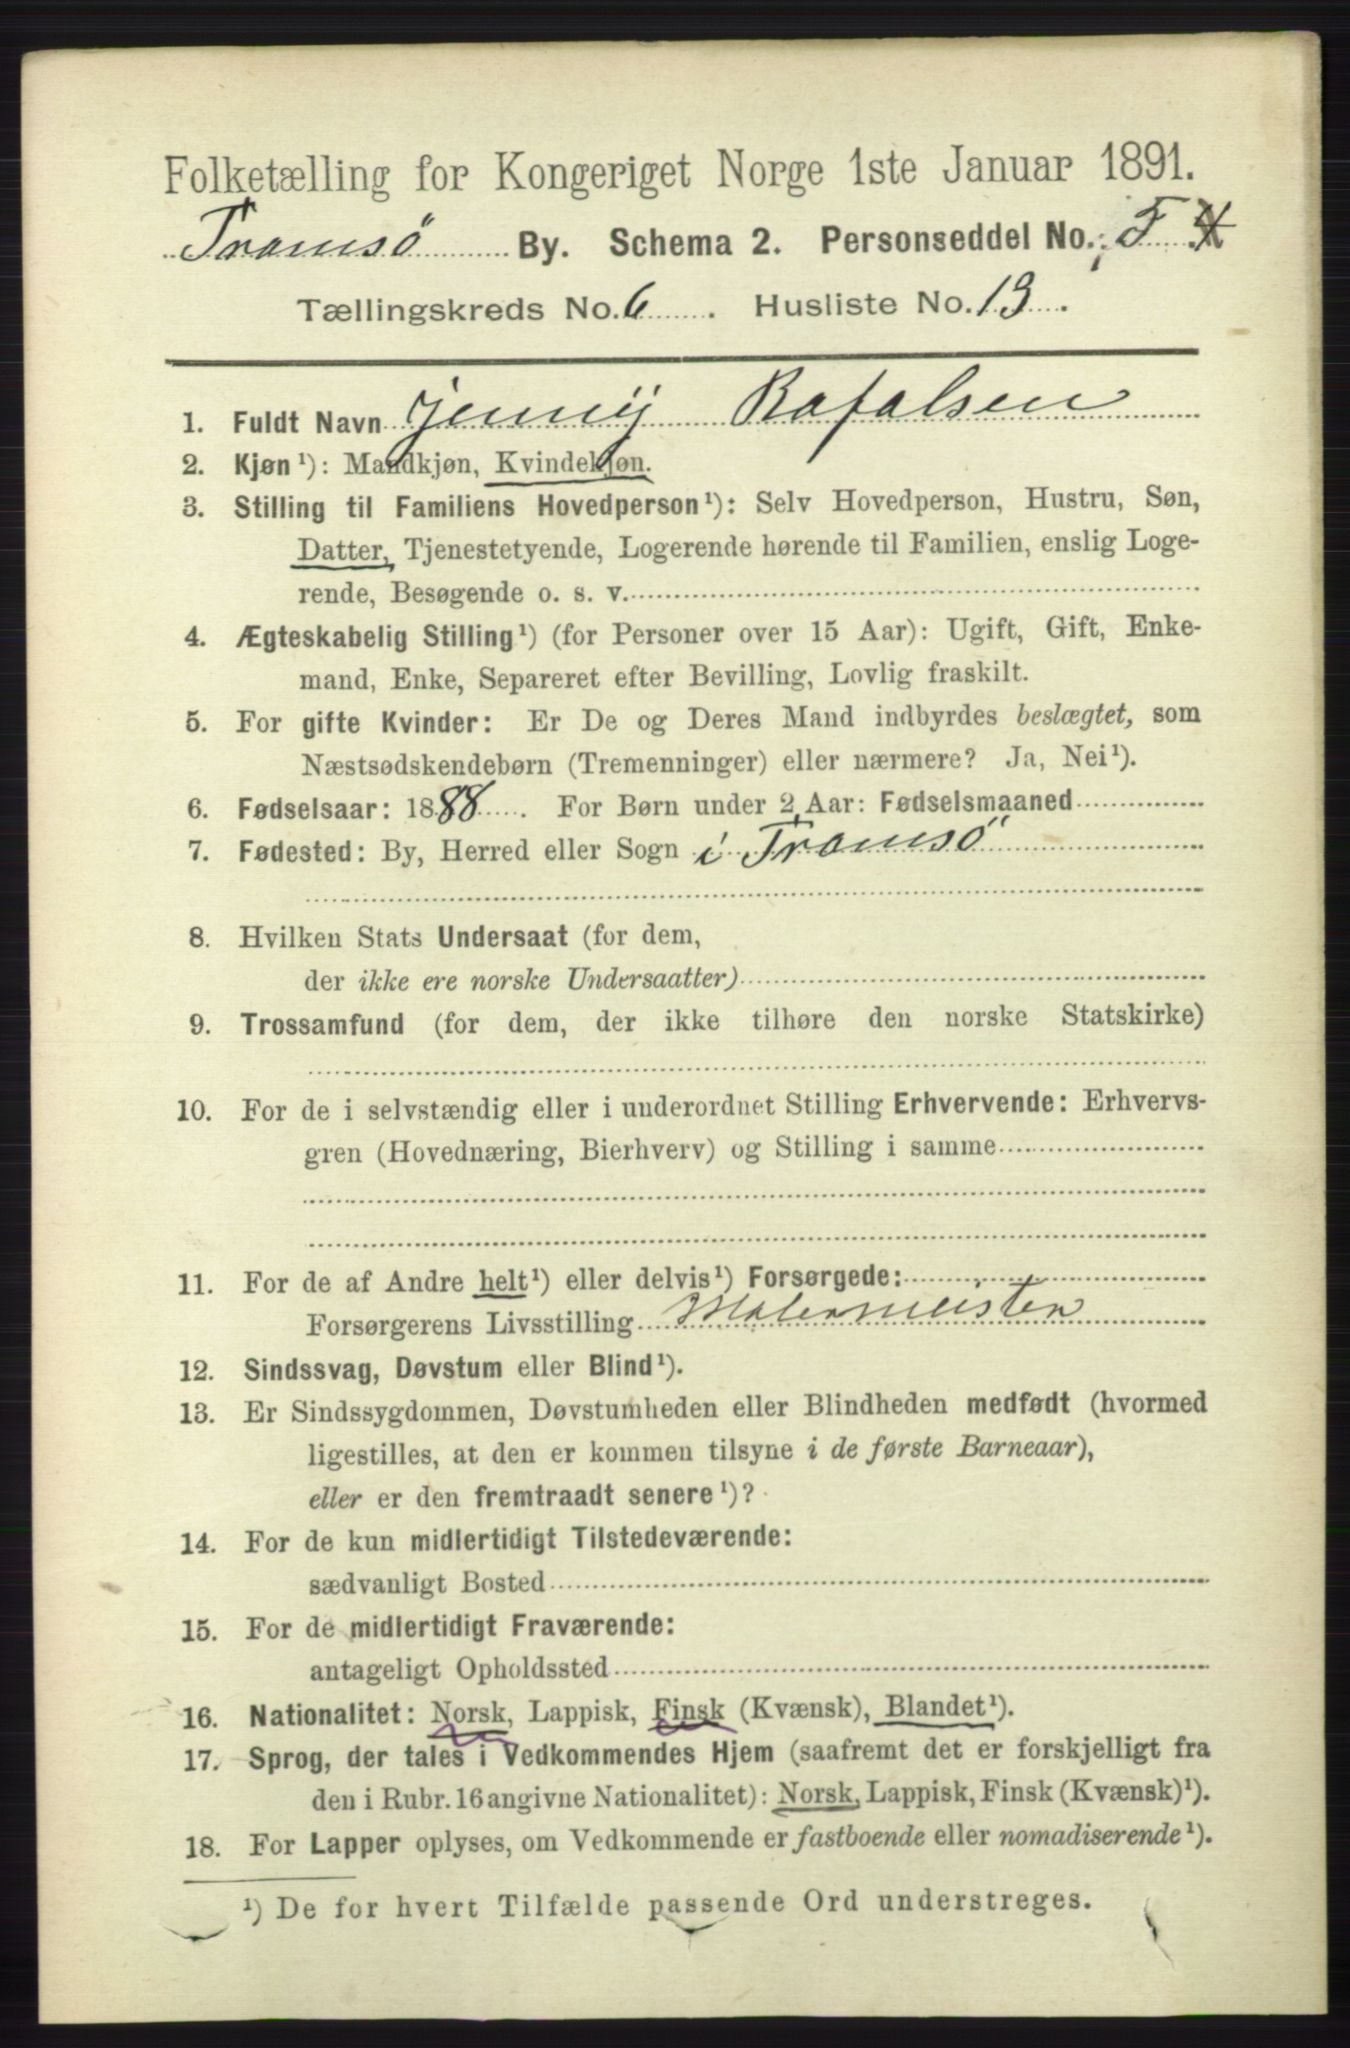 Folketælling for Kongeriget Norge 1ste Januar 1891.
Tromsö By. Schema 2. Personseddel No.
Tællingskreds No. 6. Husliste No. 13.
1. Fuldt Navn Jenny Rafalsen
2. Kjøn¹): Mandkjøn, Kvindekjøn.
3. Stilling til Familiens Hovedperson¹): Selv Hovedperson, Hustru, Søn,
Datter, Tjenestetyende, Logerende hørende til Familien, enslig Loge-
rende, Besøgende o. s. v.
4. Ægteskabelig Stilling¹) (for Personer over 15 Aar): Ugift, Gift, Enke-
mand, Enke, Separeret efter Bevilling, Lovlig fraskilt.
5. For gifte Kvinder: Er De og Deres Mand indbyrdes beslægtet, som
Næstsødskendebørn (Tremenninger) eller nærmere? Ja, Nei¹).
6. Fødselsaar: 1888. For Børn under 2 Aar: Fødselsmaaned
7. Fødested: By, Herred eller Sogn i Tromsö
8. Hvilken Stats Undersaat (for dem,
der ikke ere norske Undersaatter)
9. Trossamfund (for dem, der ikke tilhøre den norske Statskirke)
10. For de i selvstændig eller i underordnet Stilling Erhvervende: Erhvervs-
gren (Hovednæring, Bierhverv) og Stilling i samme
11. For de af Andre helt¹) eller delvis¹) Forsørgede:
Forsørgerens Livsstilling Malermeister
12. Sindssvag, Døvstum eller Blind¹).
13. Er Sindssygdommen, Døvstumheden eller Blindheden medfødt (hvormed
ligestilles, at den er kommen tilsyne i de første Barneaar),
eller er den fremtraadt senere¹)?
14. For de kun midlertidigt Tilstedeværende:
sædvanligt Bosted
15. For de midlertidigt Fraværende:
antageligt Opholdssted
16. Nationalitet: Norsk, Lappisk, Finsk (Kvænsk), Blandet¹).
17. Sprog, der tales i Vedkommendes Hjem (saafremt det er forskjelligt fra
den i Rubr. 16 angivne Nationalitet): Norsk, Lappisk, Finsk (Kvænsk)¹).
18. For Lapper oplyses, om Vedkommende er fastboende eller nomadiserende¹).
¹) De for hvert Tilfælde passende Ord understreges.